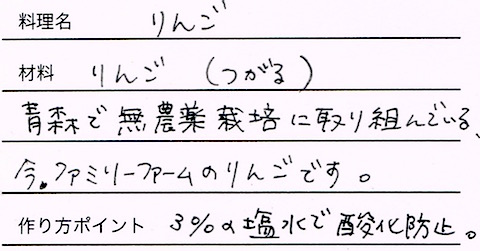 料理名 りんご
材料 りんご (つがる)
青森で無農薬栽培に取り組んでいる、
今.ファミリーファームのりんごです。
作り方ポイント 3%の塩水で酸化防止。